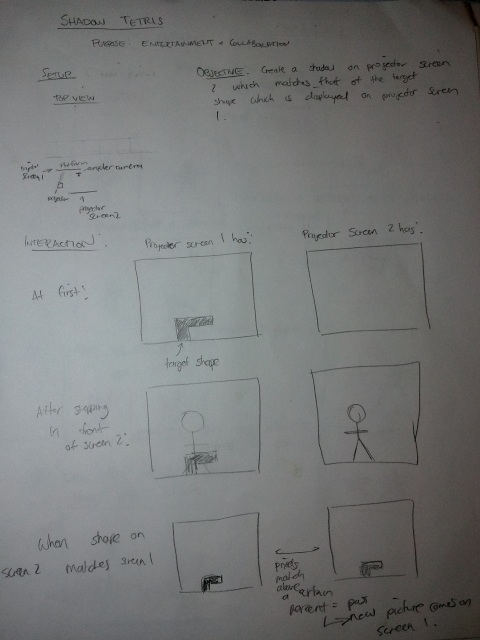 SHADOW TETRIS
PURPOSE: ENTERTAINMENT + COLLABORATION
SETUP
TOP VIEW
OBJECTIVE: Create a shadow on projector screen
2 which matches that of the target
shape which is displayed on projector screen
1.
screen 1
computer camera
projector
screen 2
INTERACTION:
Projector screen 1 has:
Projector Screen 2 has:
At first:
target shape
After standing
in front
of screen 2:
When shape on
screen 2 matches screen 1
points
match
above
a certain
percent = pass
new picture comes on
screen 1.